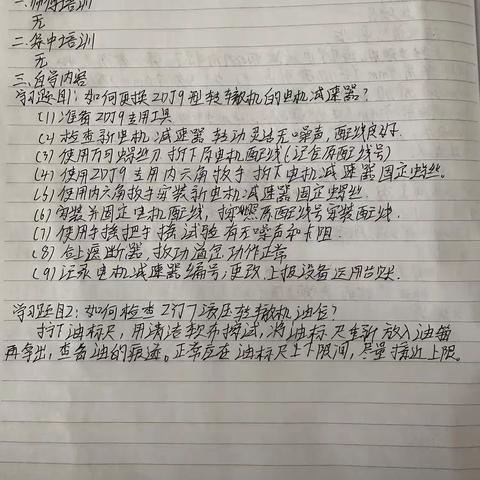 一.师徒培训
无
二.集中培训
无
三.自学内容
学习题目1:如何更换ZDJ9型转辙机的电机减速器?
(1)准备ZDJ9专用工具
(2)检查新电机、减速器转动灵活无噪声,配线良好.
(3)使用万可螺丝刀拆下原电机配线(记住原配线号)
(4)使用ZDJ9专用内六角扳手拆下电机减速器固定螺丝。
(5)使用内六角扳手安装新电机减速器固定螺丝.
(6)安装并固定电机配线,按照原配线号安装配线.
(7)使用手摇把手摇试验有无噪声和卡阻.
(8)合上遮断器,扳动道岔,动作正常
(9)记录电机减速器编号,更改上报设备运用台账.
学习题目2:如何检查ZYJ7液压转辙机油位?
拧下油标尺,用清洁软布擦试,将油标尺重新放入油缸
再拿出,查看油的痕迹。正常应在油标尺上下限间,尽量接近上限。